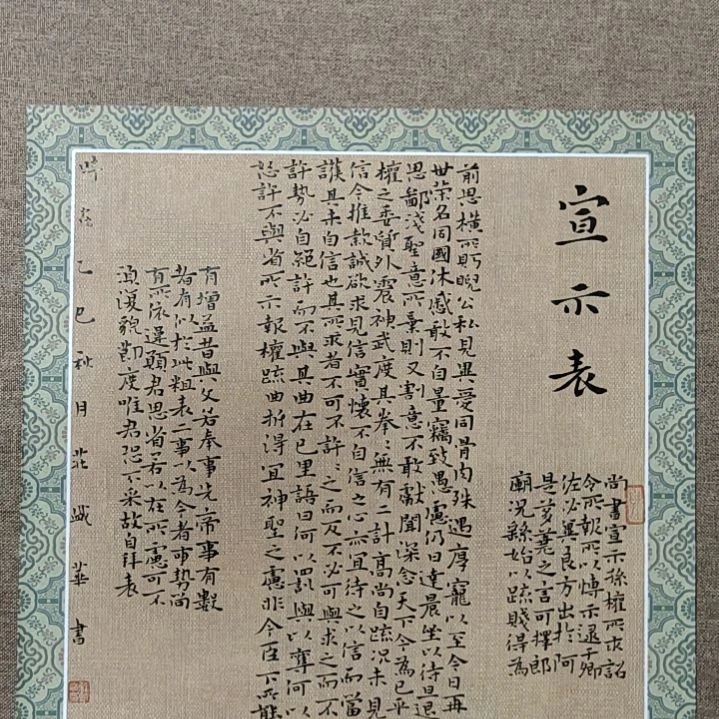 宣示表
尚書宣示孫權所求詔
令所報所以博示逮于卿
佐必冀良方出於阿
是芻蕘之言可擇郎
廟況繇始以疏賤得為
前恩橫所盱睨公私見異愛同骨肉殊遇厚寵以至今日再
世榮名同國休感敢不自量竊致愚慮仍日達晨坐以待旦退
思鄙淺聖意所棄則又割意不敢獻聞深念天下今為已平
權之委質外震神武度其拳〻無有二計高尚自疏況未見
信今推款誠欲求見信實懷不自信之心亦宜待之以信而當
護其未自信也其所求者不可不許〻之而反不必可與求之而不
許勢必自絕許而不與其曲在己里語曰何以罰與以奪何以
怒許不與省所示報權疏曲折得宜神聖之慮非今臣下所能
有增益昔與文若奉事先帝事有數
者有似於此粗表二事以為今者事勢尚
有所依違願君思省若以在所慮可不
須復貌節度唯君恐不采故自拜表
時 乙巳秋月 華書